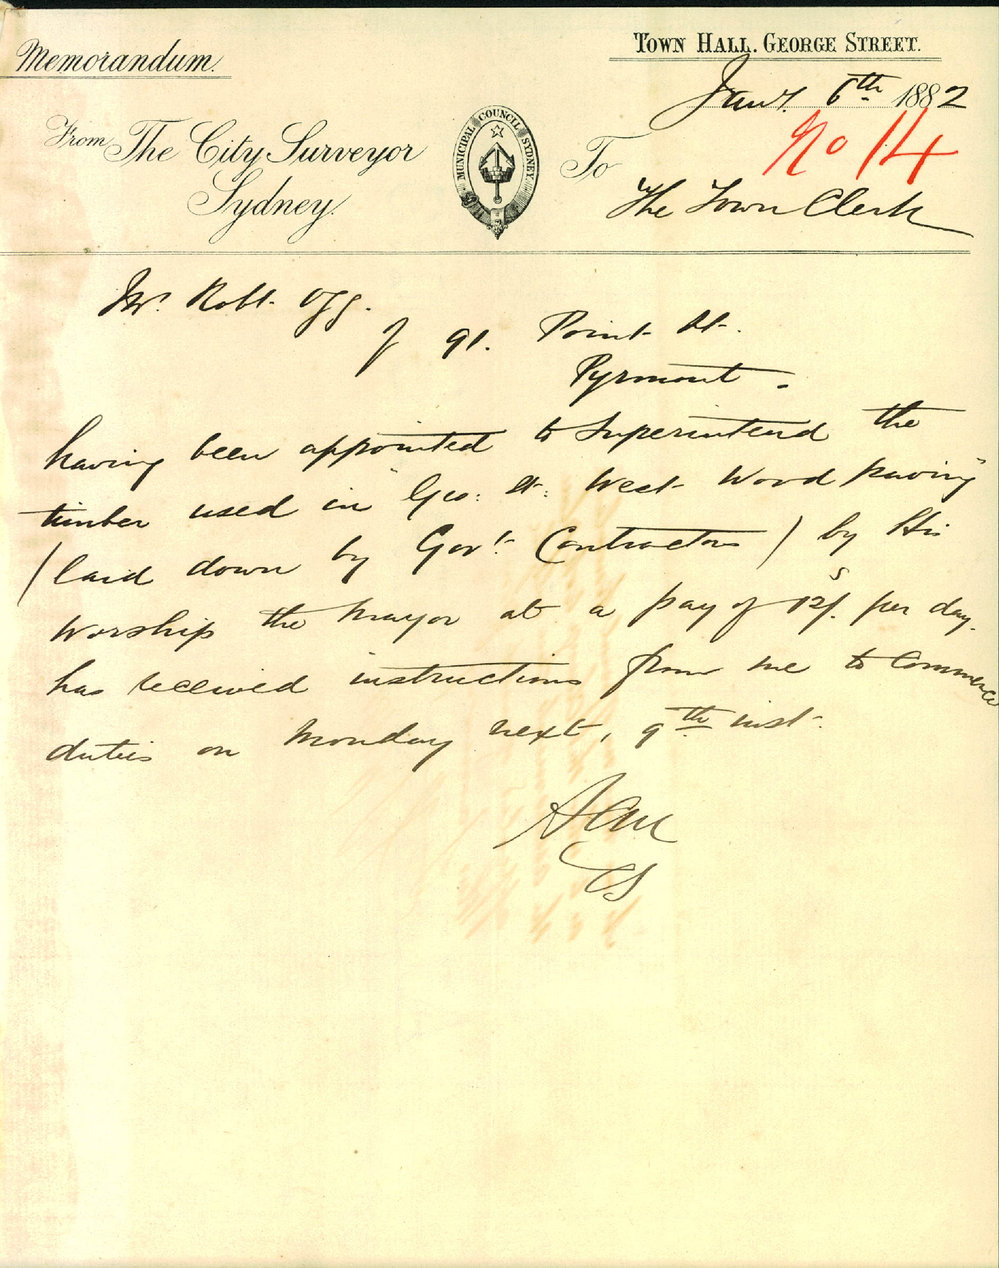 Memorandum.
TOWN HALL. GEORGE STREET.
Jany. 6th 1882
No 14
From The City Surveyor
Sydney.
MUNICIPAL COUNCIL SYDNEY
To
The Town Clerk
Mr. Robt. Ogg.
of 91. Point St.
Pyrmont.
having been appointed to Superintend the
timber used in "Geo: St: West Wood paving"
(laid down by Govt. Contractors) by His
Worship the Mayor at a pay of 12/s. per day.
has received instructions from me to Commence
duties on Monday next, 9th inst.
CS